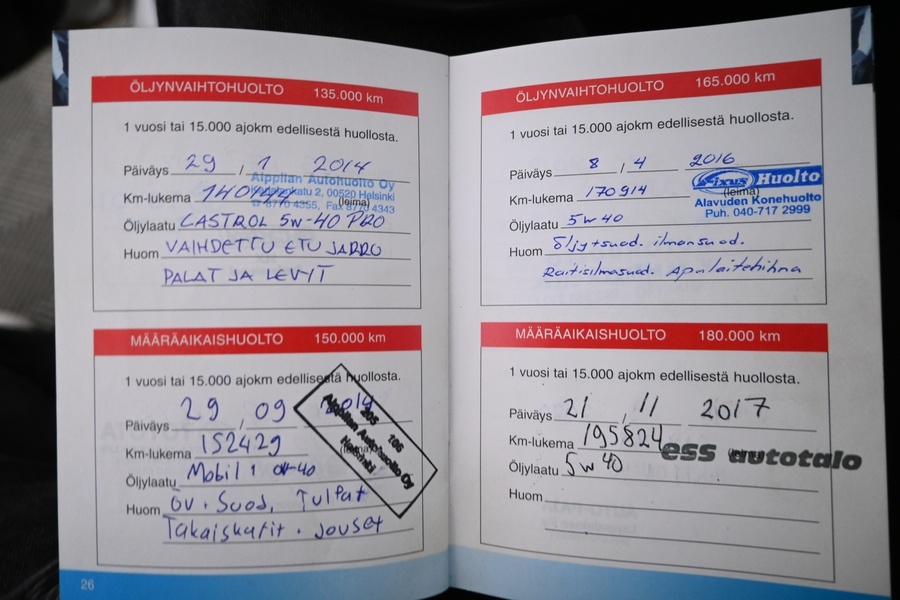 ÖLJYNVAIHTOHUOLTO 135.000 km
1 vuosi tai 15.000 ajokm edellisestä huollosta.
Päiväys 29 / 1 2014
Aippilan Autohuolto Oy
2, 00520 Helsinki
Km-lukema (leima)
4355, Fax 8770 4343
Öljylaatu CASTROL 5W-40 PRO
Huom VAIHDETTU ETU JARRU
PALAT JA LEVYT
MÄÄRÄAIKAISHUOLTO 150.000 km
1 vuosi tai 15.000 ajokm edellisestä huollosta.
Päiväys 29 / 09 2014
Km-lukema 152429
Aippilan Autohuolto Oy
Helsinki
Öljylaatu Mobil 1 0W-40
Huom ÖV. Suod, Tulpat
Takaiskarit. jouset
26
ÖLJYNVAIHTOHUOLTO 165.000 km
1 vuosi tai 15.000 ajokm edellisestä huollosta.
Päiväys 8 / 4 2016
Fixus Huolto
Km-lukema 170914 (leima)
Alavuden Konehuolto
Puh. 040-717 2999
Öljylaatu 5W40
Huom Öljy+suod. ilmansuod.
Raitisilmasuod. Apulaitehihna
MÄÄRÄAIKAISHUOLTO 180.000 km
1 vuosi tai 15.000 ajokm edellisestä huollosta.
Päiväys 21 / 11 2017
Km-lukema 195824 (leima)
ess autotalo
Öljylaatu 5W40
Huom